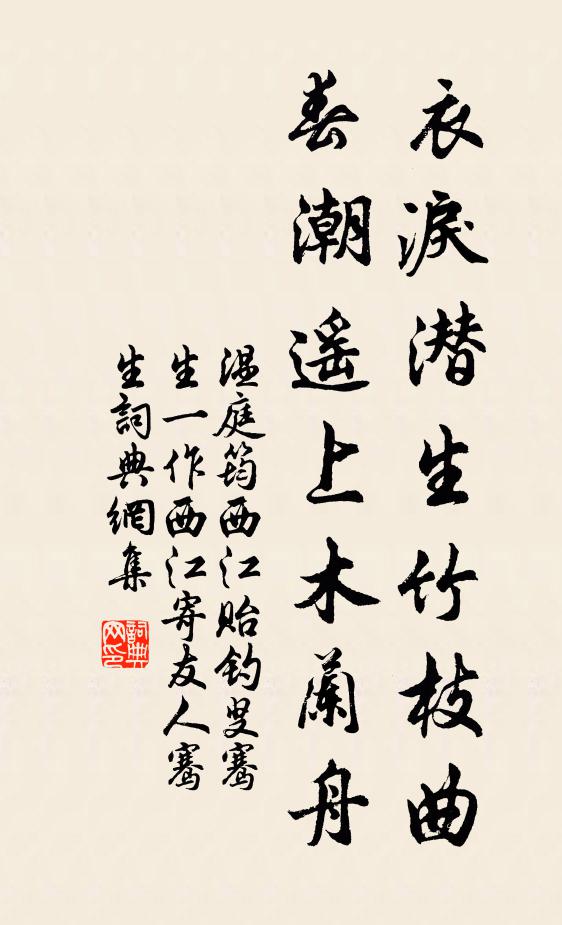 衣淚潛生竹枝曲
春潮遥上木蘭舟
溫庭筠西江貽釣叟騫
生一作西江寄友人騫
生詞典網集
詞典網印